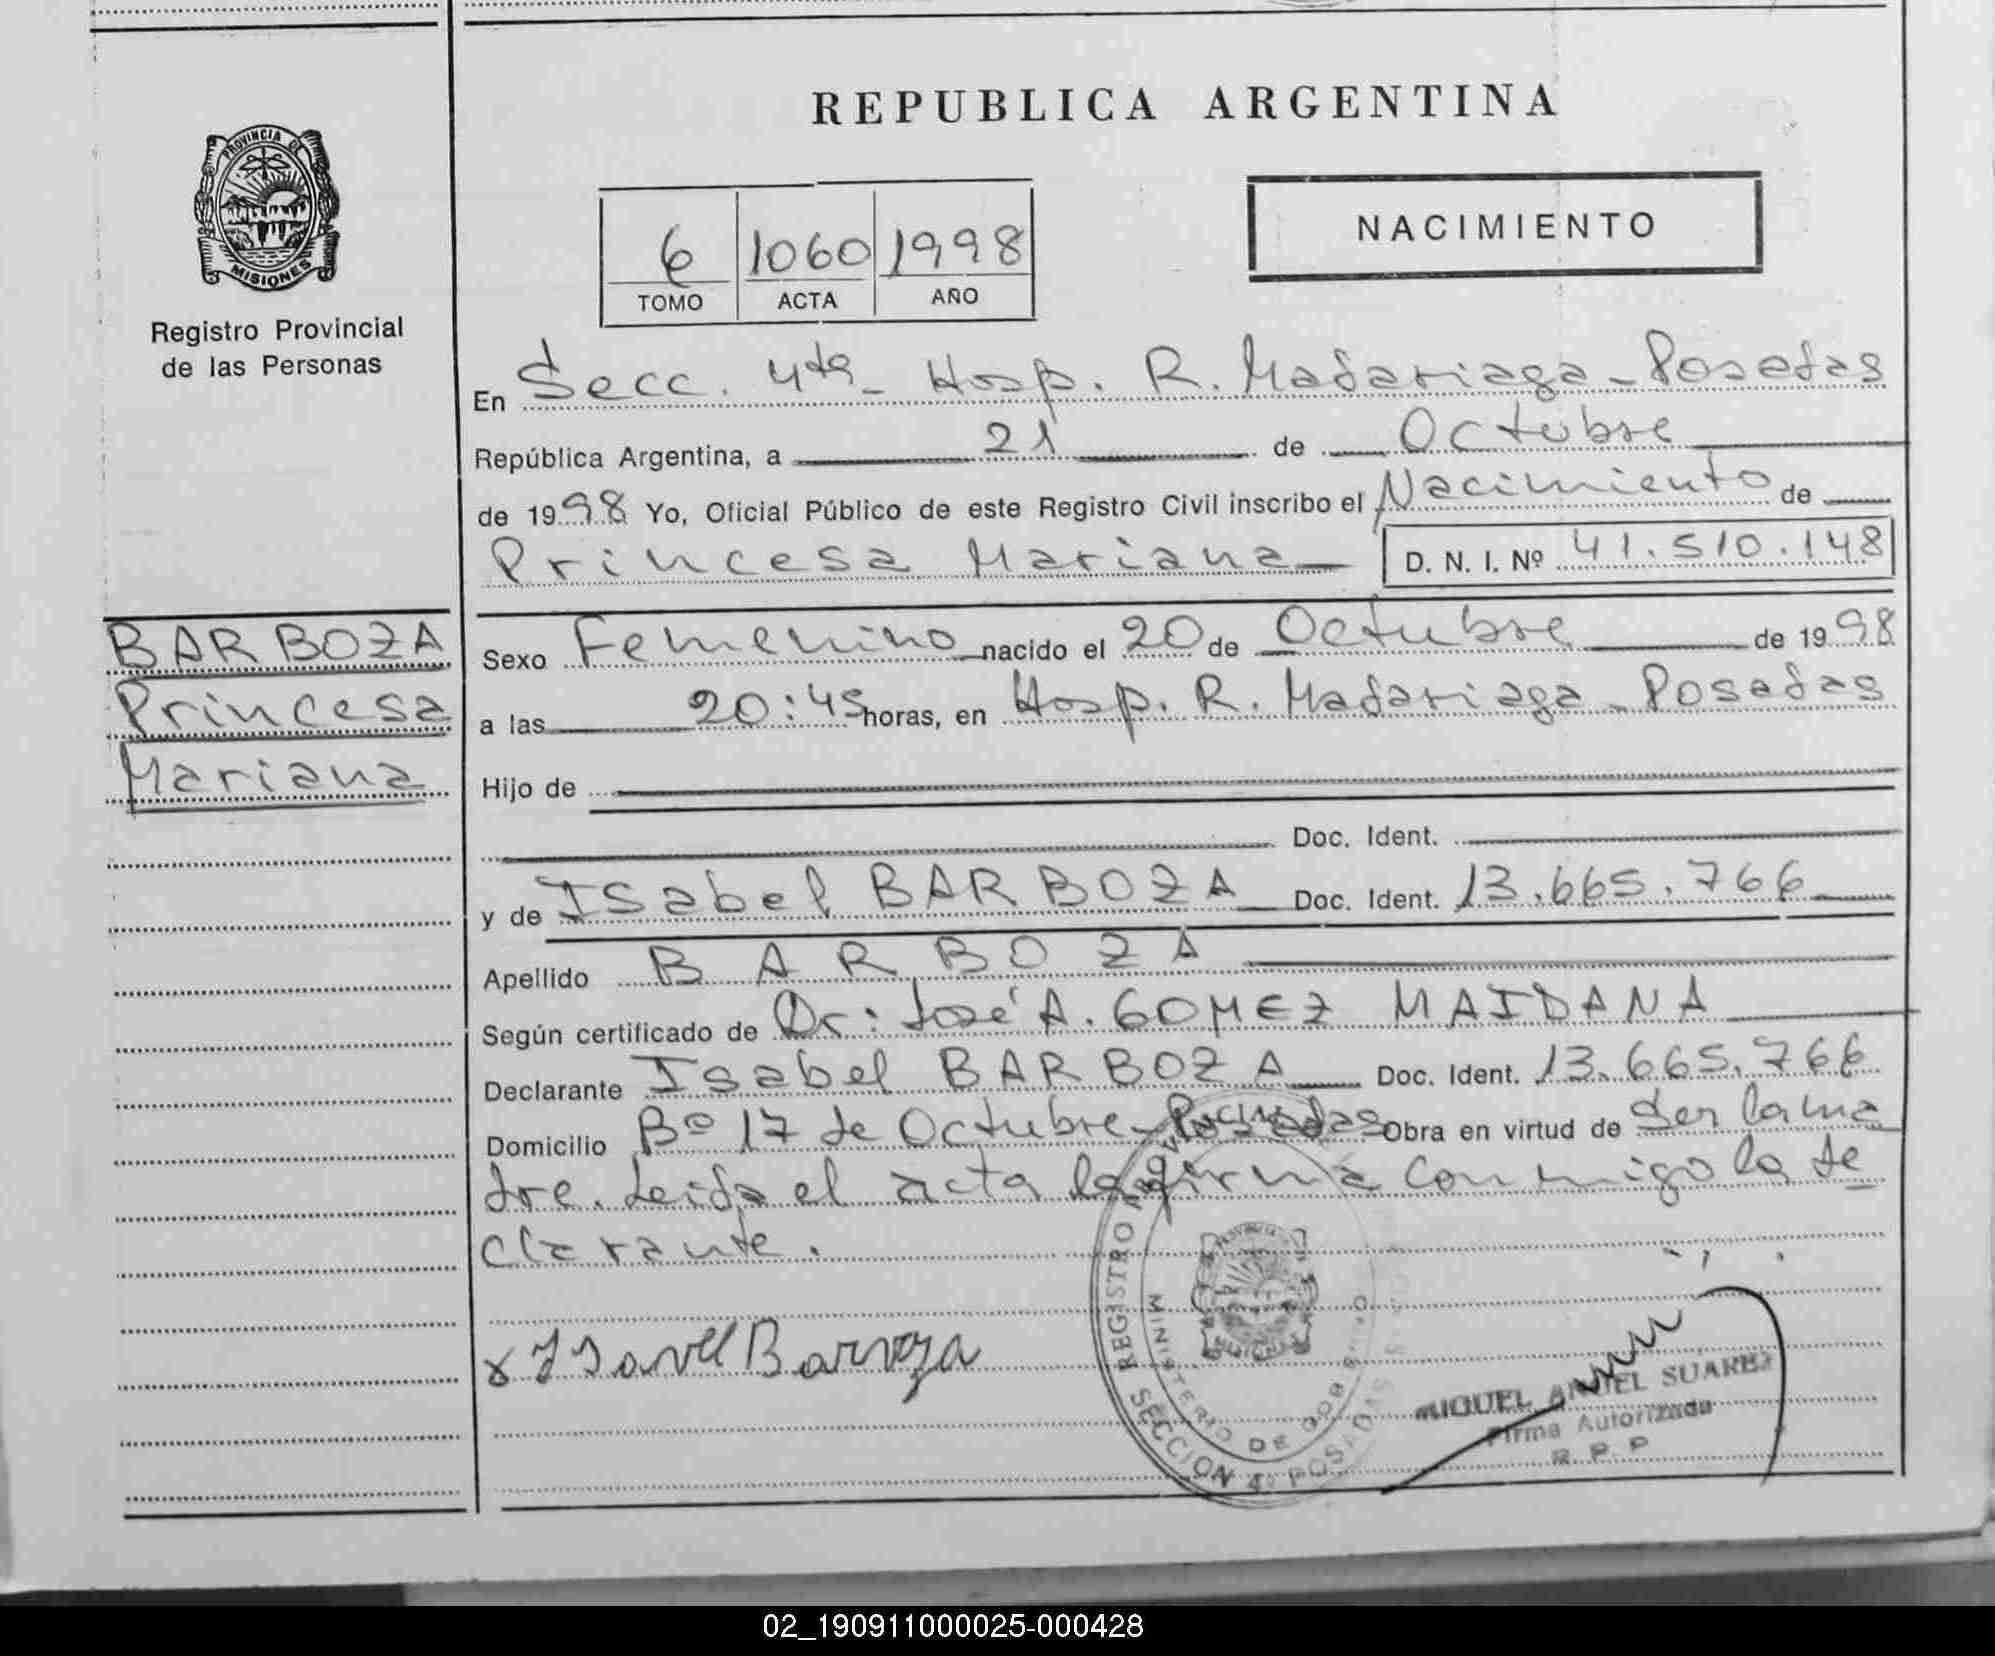 REPUBLICA ARGENTINA
PROVINCIA DE
MISIONES
Registro Provincial
de las Personas
NACIMIENTO
6 1060 1998
TOMO ACTA AÑO
En Secc. 4ta - Hosp. R. Madariaga - Posadas
República Argentina, a 21 de Octubre
de 1998 Yo, Oficial Público de este Registro Civil inscribo el Nacimiento de
Princesa Mariana D. N. I. Nº 41.510.148
BARBOZA
Princesa
Mariana
Sexo Femenino nacido el 20 de Octubre de 1998
a las 20:45 horas, en Hosp. R. Madariaga - Posadas
Hijo de
Doc. Ident.
y de Isabel BARBOZA Doc. Ident. 13.665.766
Apellido BARBOZA
Según certificado de Dr: José A. GOMEZ MAIDANA
Declarante Isabel BARBOZA Doc. Ident. 13.665.766
Domicilio Bº 17 de Octubre - Posadas Obra en virtud de Ser la ma
dre. Leida el acta la firma conmigo la de
clarante.
x Isavel Barvoza
REGISTRO
MINISTERIO DE GOBIERNO
SECCION 4º POSADAS
MIGUEL ANGEL SUAREZ
Firma Autorizada
R. P. P.
02_190911000025-000428